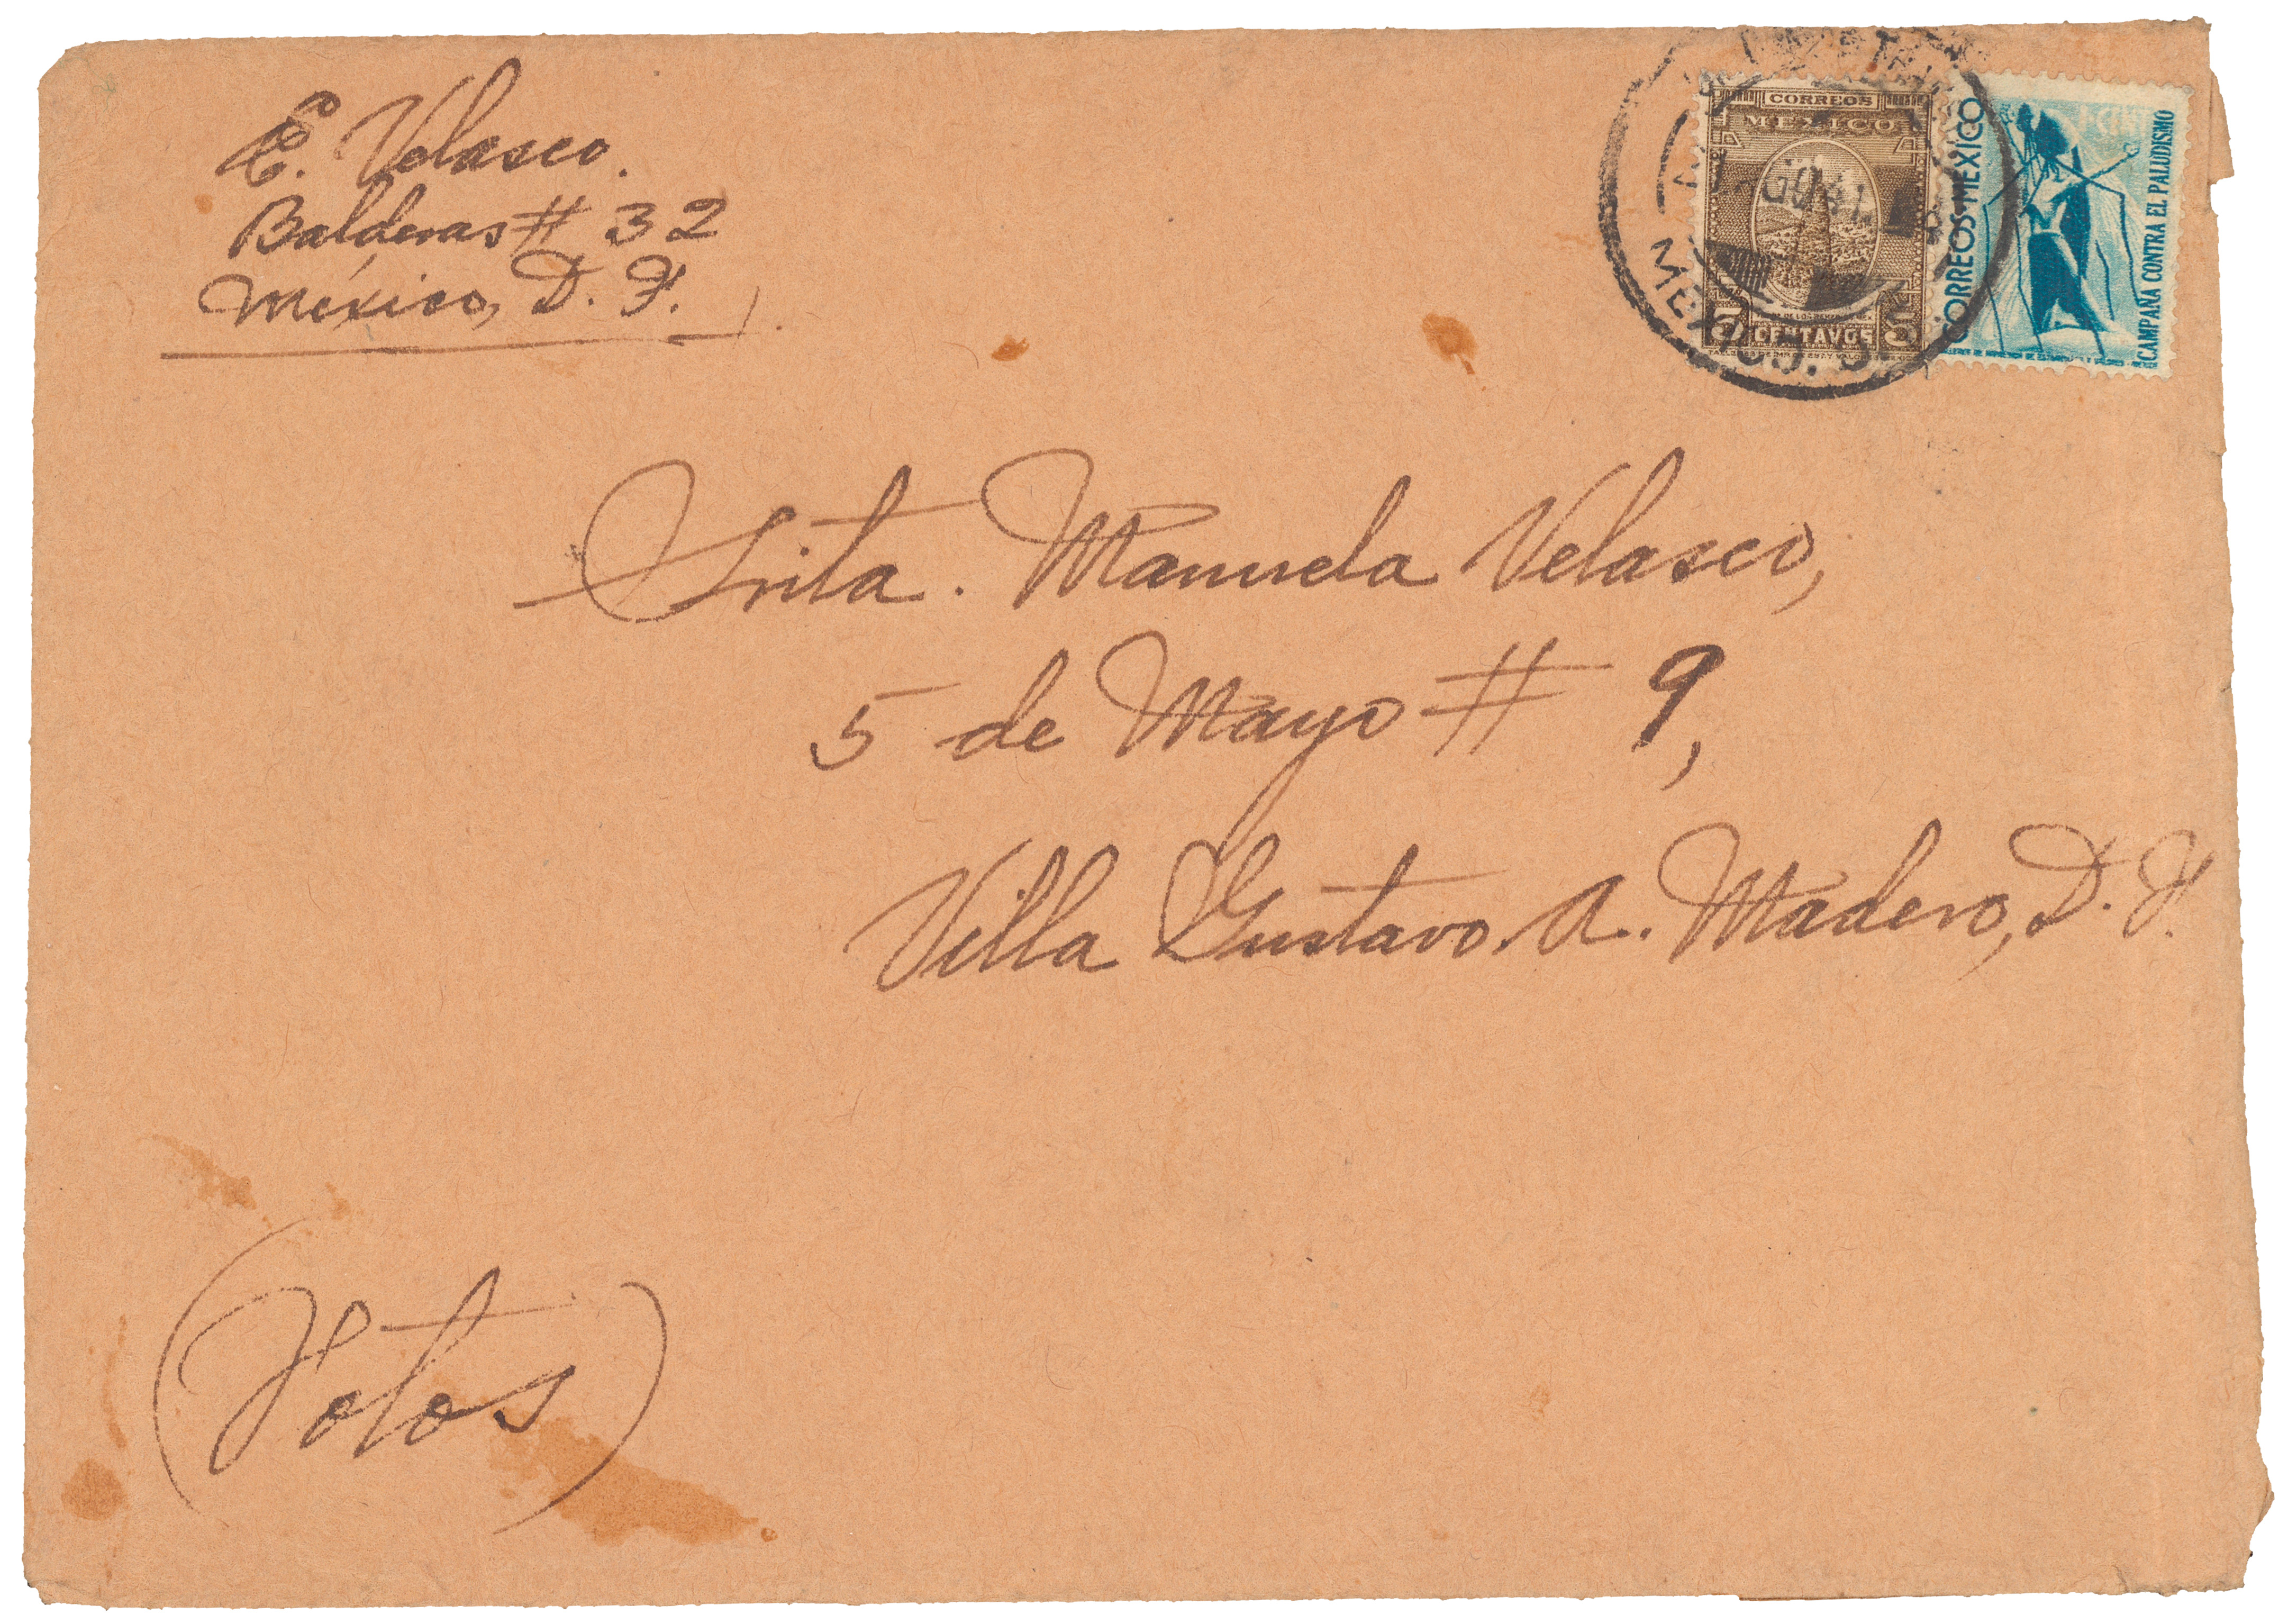 E. Velasco.
Balderas # 32
México, D. F.
CORREOS
MEXICO
5 CENTAVOS 5
MEXICO, D.
CORREOS·MEXICO
CAMPAÑA CONTRA EL PALUDISMO
Srita. Manuela Velasco,
5 de Mayo # 9,
Villa Gustavo A. Madero, D. F.
(Fotos)